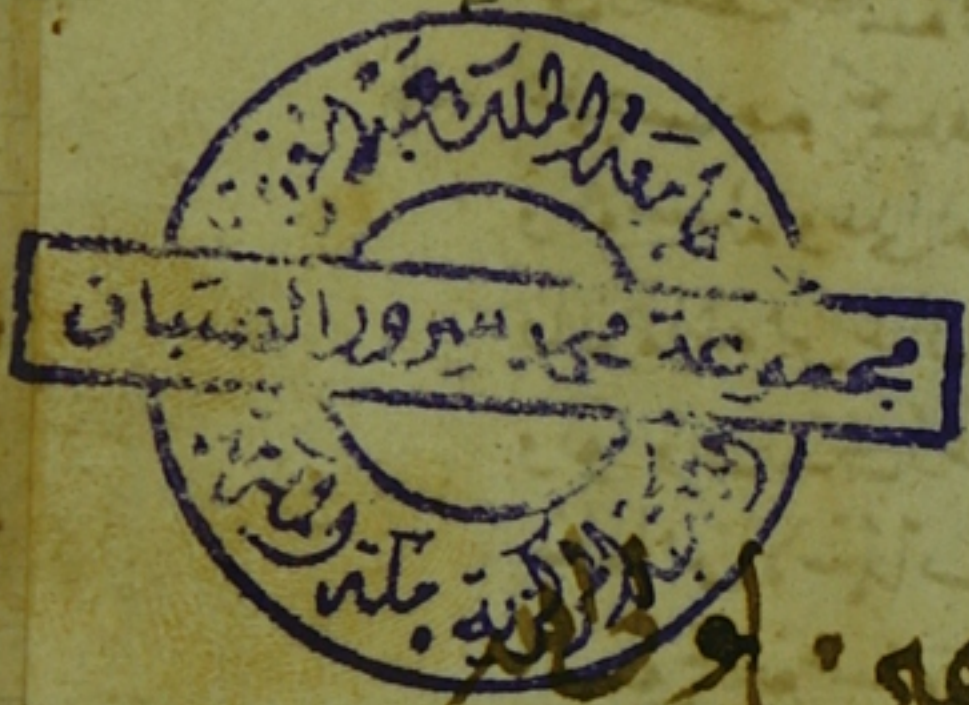 جامعة الملك عبد العزيز
مجموعة محمد سرور الصبان
المكتبة المركزية بمكة